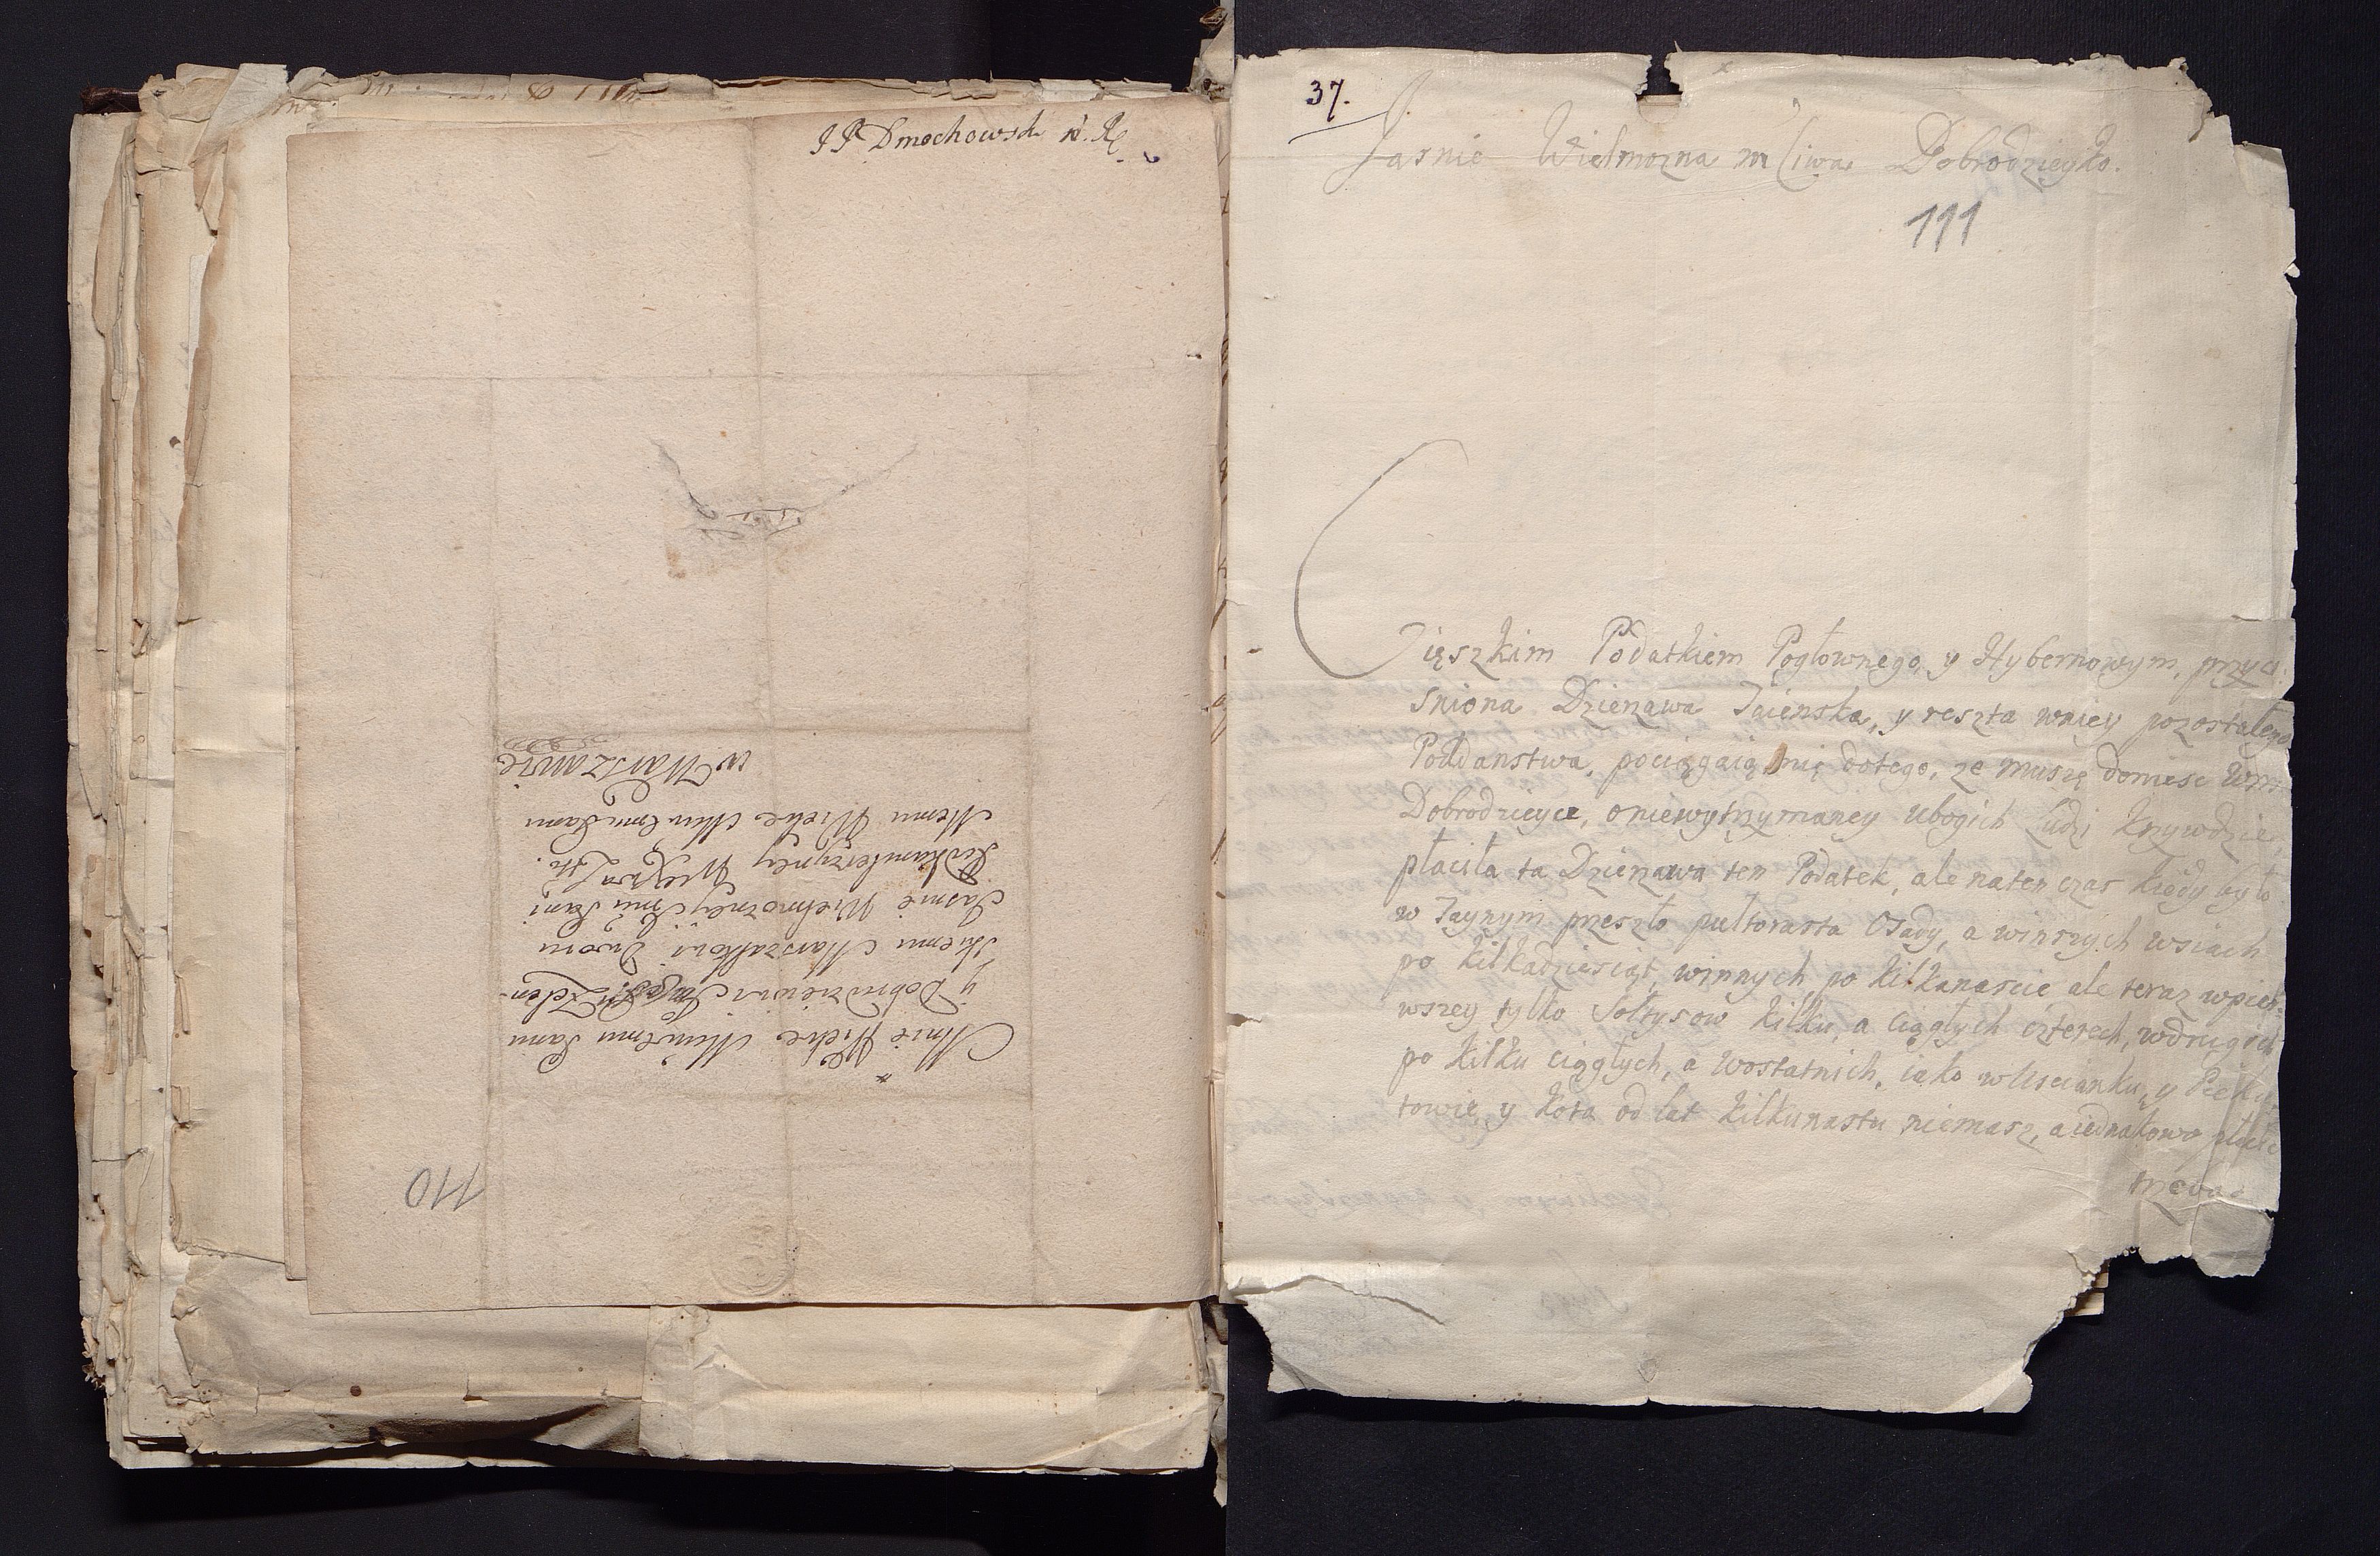 JP Dmochowski
Mnie Wielce Miłłemu Panu
y Dobrodziejowi Zelen-
skiemu Marszałkowi Dworu
Jasnie Wielmożney Jmci Pani
Podkomorzyney W X Litt.
Memu Wielce Miłłemu Panu
w Warszawie
110
37.
Jasnie Wielmozna mSciwa Dobrodzieyko.
111
Cięszkim Podatkiem Pogłownego, y Hybernowym, przyci
sniona Dzierzawa Jaienska, y reszta wniey pozostałego
Poddanstwa, pociągaią mię dotego, ze muszę doniesc
Dobrodzieyce, oniewytrzymaney ubogich Ludzi Krzywdzie,
płaciła ta Dzierzawa ten Podatek, ale naten czas kiedy było
w Jaynym przeszło pułtorasta Osady, a winszych wsiach
po kilkadziesiąt, winnych po kilkanascie, ale teraz wpier-
wszey tylko Sołtysow kilku, a ciągłych czterech, wdrugich
po kilku ciągłych, a wostatnich, iako w Uscianku, y
towie, y kota od lat kilkunastu niemasz, a iednakowo